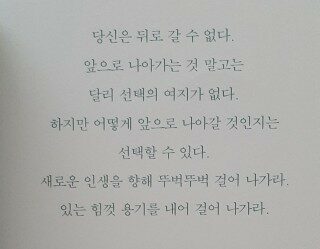 당신은 뒤로 갈 수 없다.
앞으로 나아가는 것 말고는
달리 선택의 여지가 없다.
하지만 어떻게 앞으로 나아갈 것인지는
선택할 수 있다.
새로운 인생을 향해 뚜벅뚜벅 걸어 나가라.
있는 힘껏 용기를 내어 걸어 나가라.